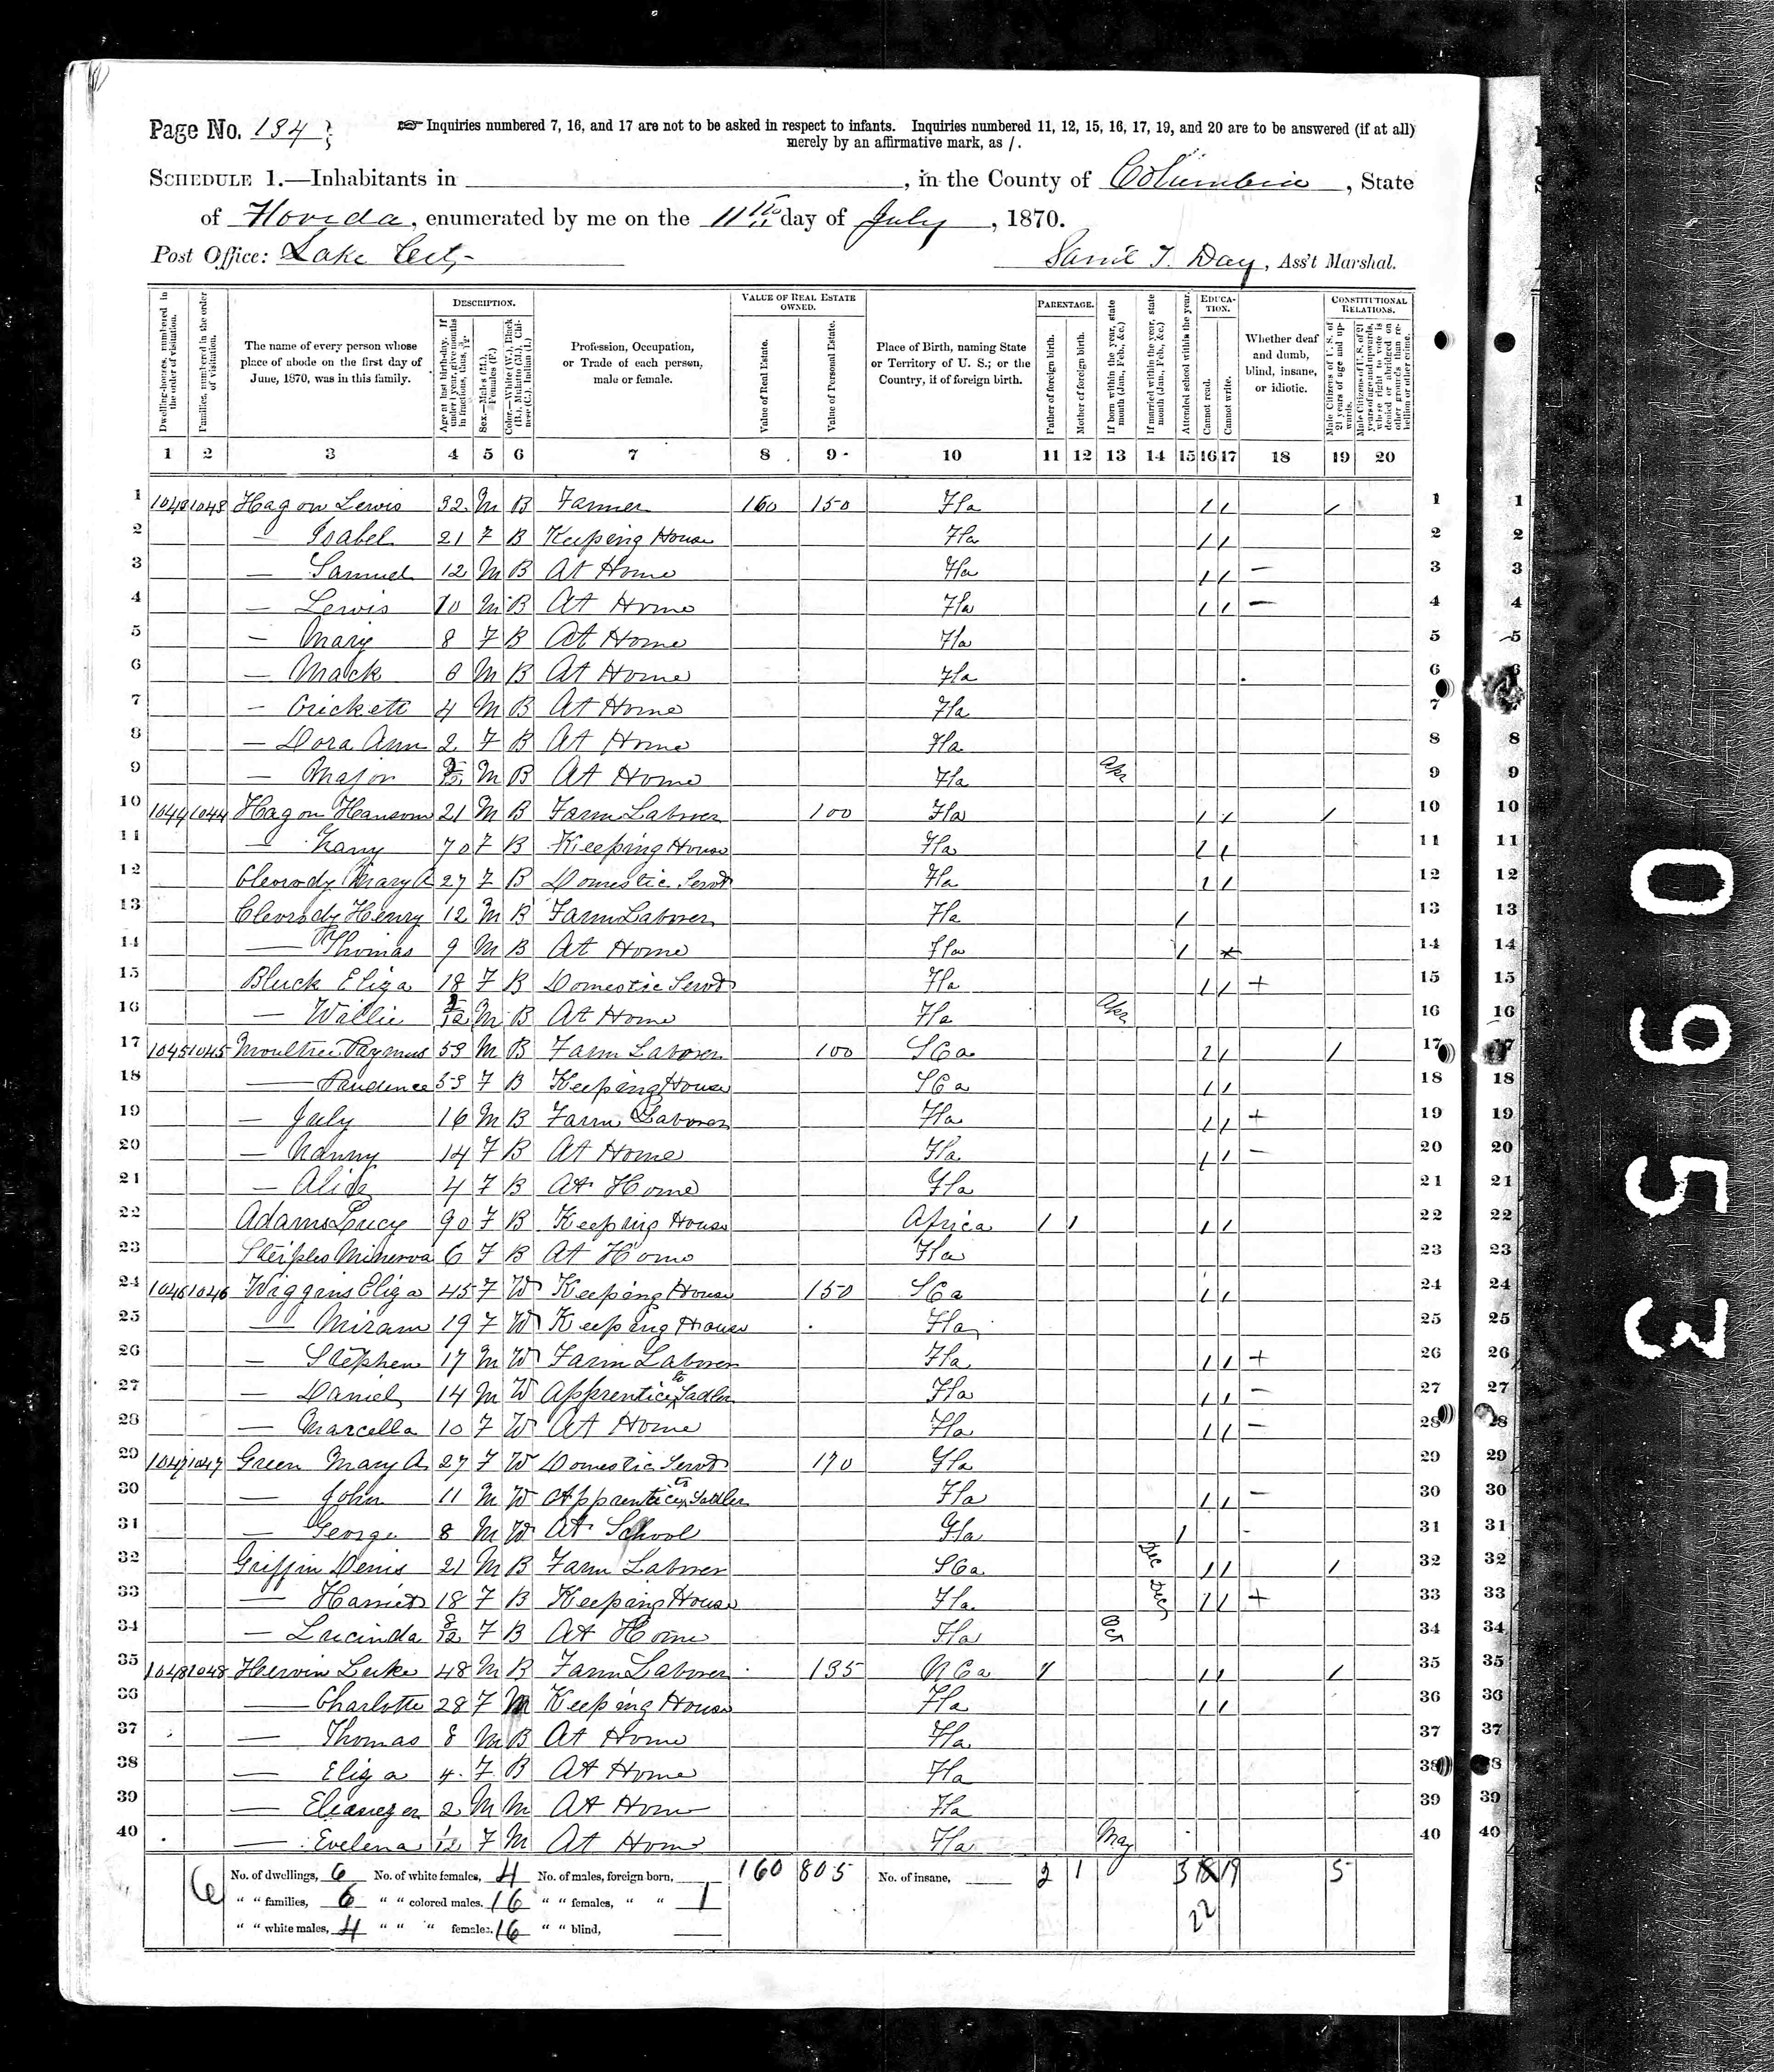 Page No. 134
☞ Inquiries numbered 7, 16, and 17 are not to be asked in respect to infants. Inquiries numbered 11, 12, 15, 16, 17, 19, and 20 are to be answered (if at all)
merely by an affirmative mark, as /.
SCHEDULE 1.—Inhabitants in , in the County of Columbia , State
of Florida, enumerated by me on the 11th day of July , 1870.
Post Office: Lake City
Saml T. Day, Ass't Marshal.
DESCRIPTION. VALUE OF REAL ESTATE OWNED. PARENTAGE. EDUCATION. CONSTITUTIONAL RELATIONS.
Dwelling-houses, numbered in the order of visitation.
Families, numbered in the order of visitation.
The name of every person whose place of abode on the first day of June, 1870, was in this family.
Age at last birth-day. If under 1 year, give months in fractions, thus, 3/12.
Sex.—Males (M.), Females (F.)
Color.—White (W.), Black (B.), Mulatto (M.), Chinese (C.), Indian (I.)
Profession, Occupation, or Trade of each person, male or female.
Value of Real Estate.
Value of Personal Estate.
Place of Birth, naming State or Territory of U. S.; or the Country, if of foreign birth.
Father of foreign birth.
Mother of foreign birth.
If born within the year, state month (Jan., Feb., &c.)
If married within the year, state month (Jan., Feb., &c.)
Attended school within the year.
Cannot read.
Cannot write.
Whether deaf and dumb, blind, insane, or idiotic.
Male Citizens of U. S. of 21 years of age and upwards.
Male Citizens of U. S. of 21 years of age and upwards, whose right to vote is denied or abridged on other grounds than rebellion or other crime.
1 2 3 4 5 6 7 8 9 10 11 12 13 14 15 16 17 18 19 20
1 1043 1043 Hagon Lewis 32 M B Farmer 160 150 Fla / / / 1 1
2 — Isabel 21 F B Keeping House Fla / / 2 2
3 — Samuel 12 M B At Home Fla / / — 3 3
4 — Lewis 10 M B At Home Fla / / — 4 4
5 — Mary 8 F B At Home Fla 5 5
6 — Mack 6 M B At Home Fla 6 6
7 — Crickett 4 M B At Home Fla 7
8 — Dora Ann 2 F B At Home Fla 8 8
9 — Major M B At Home Fla Apr 9 9
10 1044 1044 Hagon Hansom 21 M B Farm Laborer 100 Fla / / / 10 10
11 — Nany 70 F B Keeping House Fla / / 11 11
12 Mary A 27 F B Domestic Servt Fla / / 12 12
13 Henry 12 M B Farm Laborer Fla / 13 13
14 — Thomas 9 M B At Home Fla / 14 14
15 Bluck Eliza 18 F B Domestic Servt Fla / / + 15 15
16 — Willie M B At Home Fla Apr 16 16
17 1045 1045 Moultrie 53 M B Farm Laborer 100 S Ca / / / 17
18 — Prudence 53 F B Keeping House S Ca / / 18 18
19 — July 16 M B Farm Laborer Fla / / + 19 19
20 — Nanny 14 F B At Home Fla / / — 20 20
21 — Alice 4 F B At Home Fla 21 21
22 Adams Lucy 90 F B Keeping House Africa / / / / 22 22
23 Minerva 6 F B At Home Fla 23 23
24 1046 1046 Wiggins Eliza 45 F W Keeping House 150 S Ca / / 24 24
25 — Miriam 19 F W Keeping House Fla 25 25
26 — Stephen 17 M W Farm Laborer Fla / / + 26 26
27 — Daniel 14 M W Apprentice to Sadler Fla / / — 27 27
28 — Marcella 10 F W At Home Fla / / — 28 28
29 1047 1047 Green Mary A 27 F W Domestic Servt 170 Fla 29 29
30 — John 11 M W Apprentice to Sadler Fla / / — 30 30
31 — George 8 M W At School Fla / 31 31
32 Griffin Denis 21 M B Farm Laborer S Ca Dec / / / 32 32
33 — Harriet 18 F B Keeping House Fla Dec / / + 33 33
34 — Lucinda 8/12 F B At Home Fla Oct 34 34
35 1048 1048 Luke 48 M B Farm Laborer 135 N Ca / / / / 35 35
36 — Charlotte 28 F M Keeping House Fla / / 36 36
37 — Thomas 8 M B At Home Fla 37 37
38 — Eliza 4 F B At Home Fla 38 38
39 — Ebenezer 2 M M At Home Fla 39 39
40 — Evelena 1/12 F M At Home Fla May 40 40
No. of dwellings, 6 No. of white females, 4 No. of males, foreign born, 160 805 No. of insane, 2 1 3 18 19 5
6 " " families, 6 " " colored males, 16 " " females, " " 1
" " white males, 4 " " " females, 16 " " blind,
22
0953